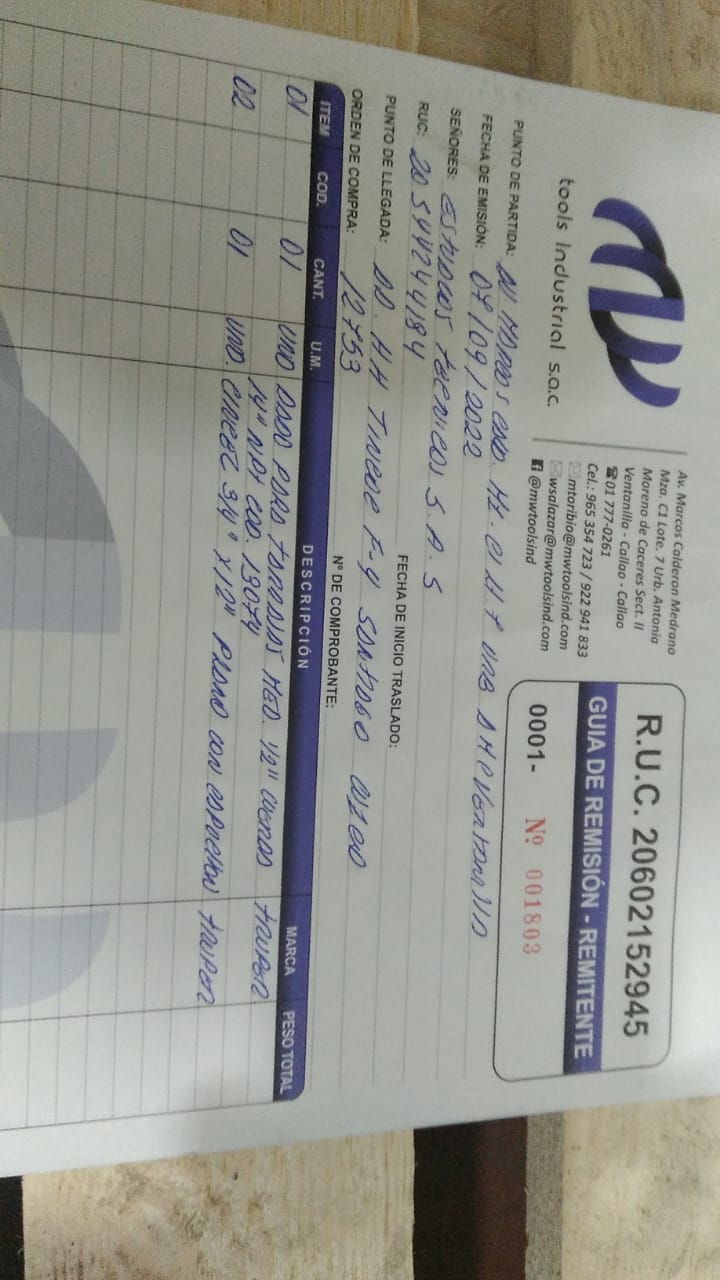 mw
tools Industrial s.a.c.
Av. Marcos Calderon Medrano
Mza. C1 Lote. 7 Urb. Antonia
Moreno de Caceres Sect. II
Ventanilla - Callao - Callao
☎01 777-0261
Cel.: 965 354 723 / 922 941 833
mtoribio@mwtoolsind.com
wsalazar@mwtoolsind.com
@mwtoolsind
R.U.C. 20602152945
GUIA DE REMISIÓN - REMITENTE
0001- Nº 001803
PUNTO DE PARTIDA: AV MARCOS CALD. MZ. C1 LT 7 URB A M C VENTANILLA
FECHA DE EMISIÓN: 07/09/2022
SEÑORES: ESTUDIOS TECNICOS S.A.S
RUC: 20544244184
FECHA DE INICIO TRASLADO:
PUNTO DE LLEGADA: AA. HH TINEDE F-4 SANTIAGO
ORDEN DE COMPRA: 12753
Nº DE COMPROBANTE:
ITEM COD. CANT. U.M. DESCRIPCIÓN MARCA PESO TOTAL
01 01 UND DADO PARA TARRAJAS HED. 1/2" CUERDA TRUPER
14" NPT COD. 13074
02 01 UND. CINCEL 3/4" X 12" PLANO CON TRUPER